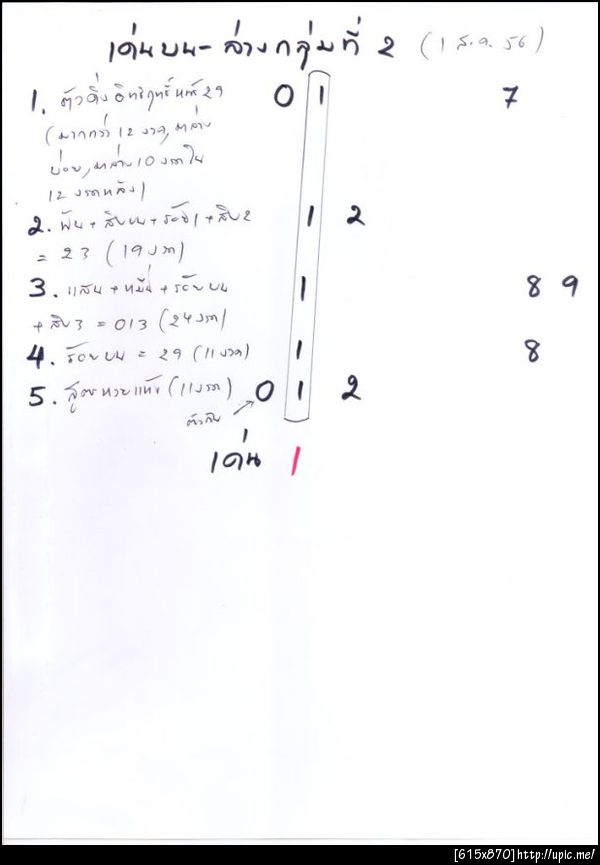 เด่นบน-ล่างกลุ่มที่ 2 (1 ส.ค. 56)
1. ตัวดิ่งอิทธิฤทธิ์ 29 0 1 7
(มากกว่า 12 งวด, ล่าง
บ่อย, 10 งวดใน
12 งวดหลัง)
2. พัน + สิบบน + ร้อย1 + สิบ2 1 2
= 23 (19 งวด)
3. แสน + หมื่น + ร้อยบน 1 8 9
+ สิบ3 = 013 (24 งวด)
4. ร้อยบน = 29 (11 งวด) 1 8
5. สูตรหวยแห้ว (11 งวด) 0 1 2
เด่น 1
[615x870]http://upic.me/